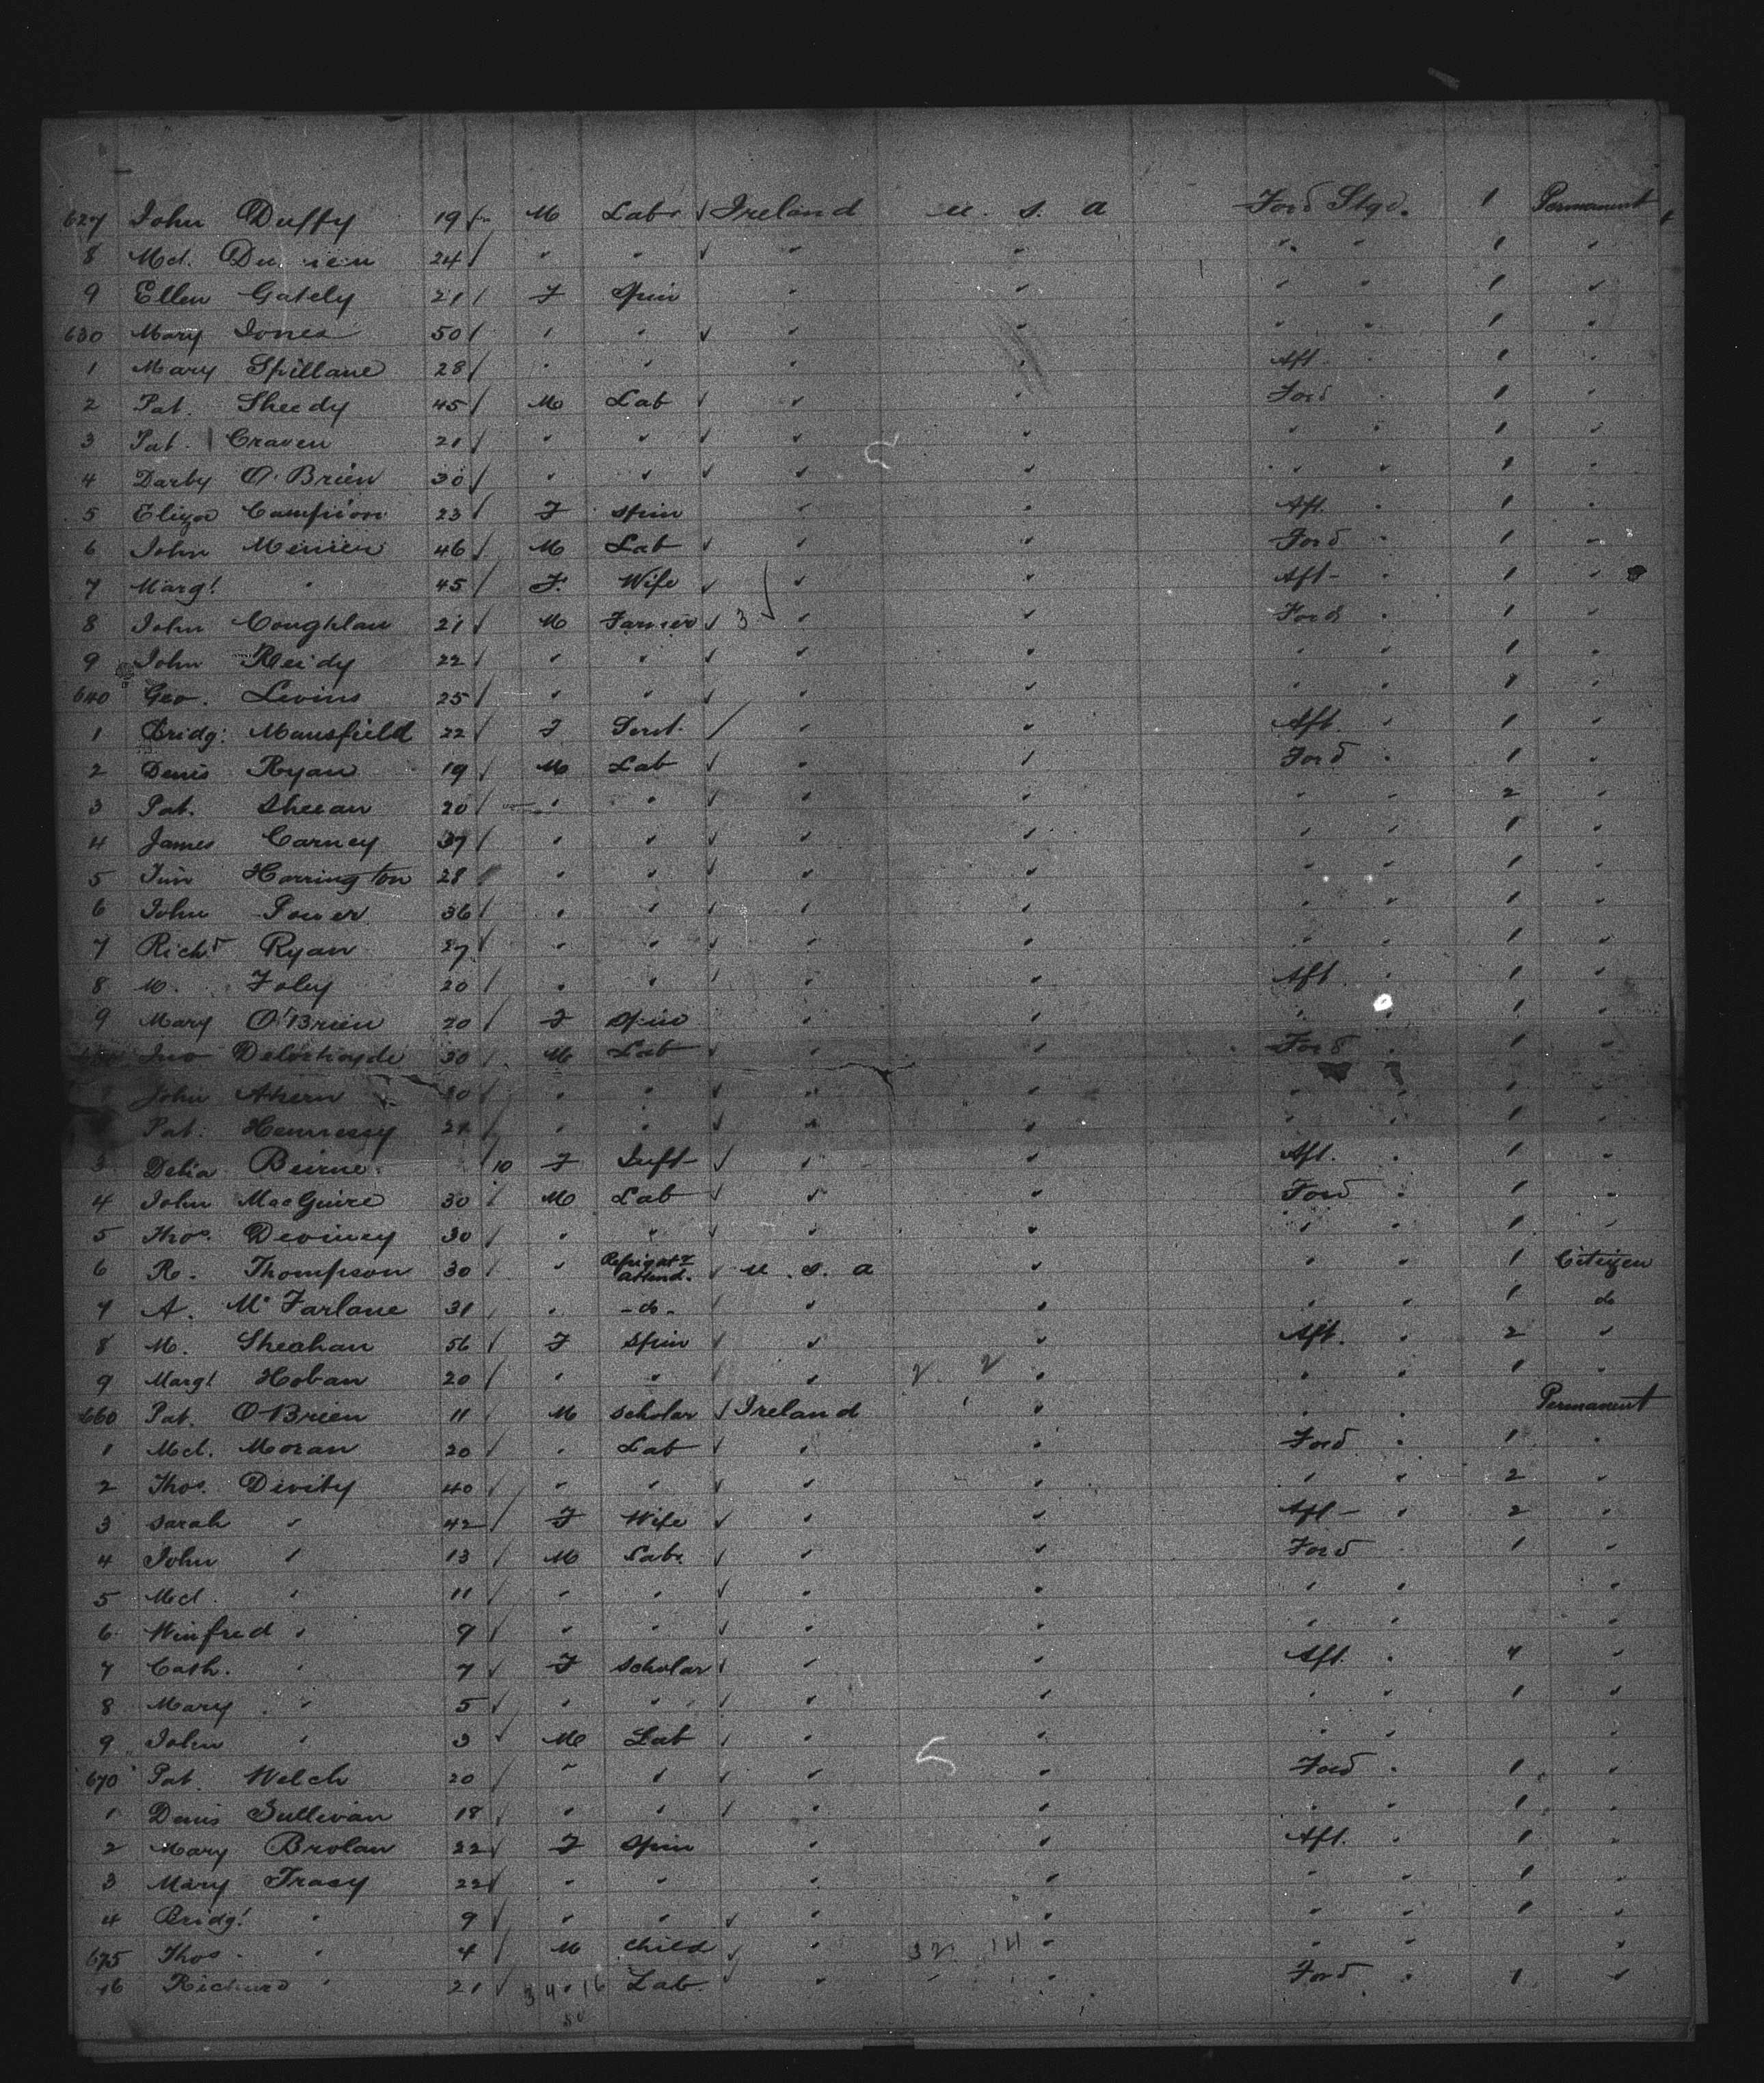 627 John Duffy 19 M Labr Ireland U. S. A Ford Stge. 1 Permanent
8 Mcl. 24 " " " " " " 1 "
9 Ellen Gately 21 F Spin " " " " 1 "
630 Mary Jones 50 " " " " " " 1 "
1 Mary Spillane 28 " " " " Aft. " 1 "
2 Pat. Sheedy 45 M Lab " " Ford " 1 "
3 Pat. Craven 21 " " " " " " 1 "
4 Darby O'Brien 30 " " " " " " 1 "
5 Eliza Campion 23 F Spin " " Aft. " 1 "
6 John 46 M Lab " " Ford " 1 "
7 Margt " 45 F. Wife " " Aft " 1 "
8 John Coughlan 21 M Farmer 3 " " Ford " 1 "
9 John Reidy 22 " " " " " " 1 "
640 Geo. Levins 25 " " " " " " 1 "
1 Bridg: Mansfield 22 F Servt. " " Aft. " 1 "
2 Denis Ryan 19 M Lab " " Ford " 1 "
3 Pat. Sheean 20 " " " " " " 2 "
4 James Carney 37 " " " " " " 1 "
5 Tim Harrington 28 " " " " " " 1 "
6 John Power 36 " " " " " " 1 "
7 Richd Ryan 27 " " " " " " 1 "
8 M. Foley 20 " " " " Aft. " 1 "
9 Mary O'Brien 20 F Spin " " " " 1 "
Jno 30 M Lab " " Ford " 1 "
John Ahern 20 " " " " " " 1 "
Pat. Hennessy " " " " " " 1 "
3 Delia Beirne 10 F Inft " " Aft. " 1 "
4 John MacGuire 30 M Lab " " Ford " 1 "
5 Thos. Deviney 30 " " " " " " 1 "
6 R. Thompson 30 " Refrigatr attend. U. S. A " " " 1 Citizen
7 A. McFarlane 31 " -do- " " " " 1 do
8 M. Sheahan 56 F Spin " " Aft. " 2 "
9 Margt Hoban 20 " " " " " " 1 "
660 Pat. O'Brien 11 M Scholar Ireland " " " Permanent
1 Mcl. Moran 20 " Lab " " Ford " 1 "
2 Thos. Divity 40 " " " " " " 2 "
3 Sarah " 42 F Wife " " Aft " 2 "
4 John " 13 M Labr. " " Ford 1 "
5 Mcl. " 11 " " " " " " "
6 Winfred " 9 " " " " " " "
7 Cath. " 7 F Scholar " " Aft. " "
8 Mary " 5 " " " " " " 1 "
9 John " 3 M Lab " " " " "
670 Pat. Welch 20 " " " " Ford " 1 "
1 Denis Sullivan 18 " " " " " " 1 "
2 Mary Brolan 22 F Spin " " Aft. " 1 "
3 Mary Tracy 22 " " " " " " 1 "
4 Bridgt " 9 " " " " " " 1 "
675 Thos. " 4 M Child " " " " "
76 Richard " 21 Lab. " " Ford " 1 "